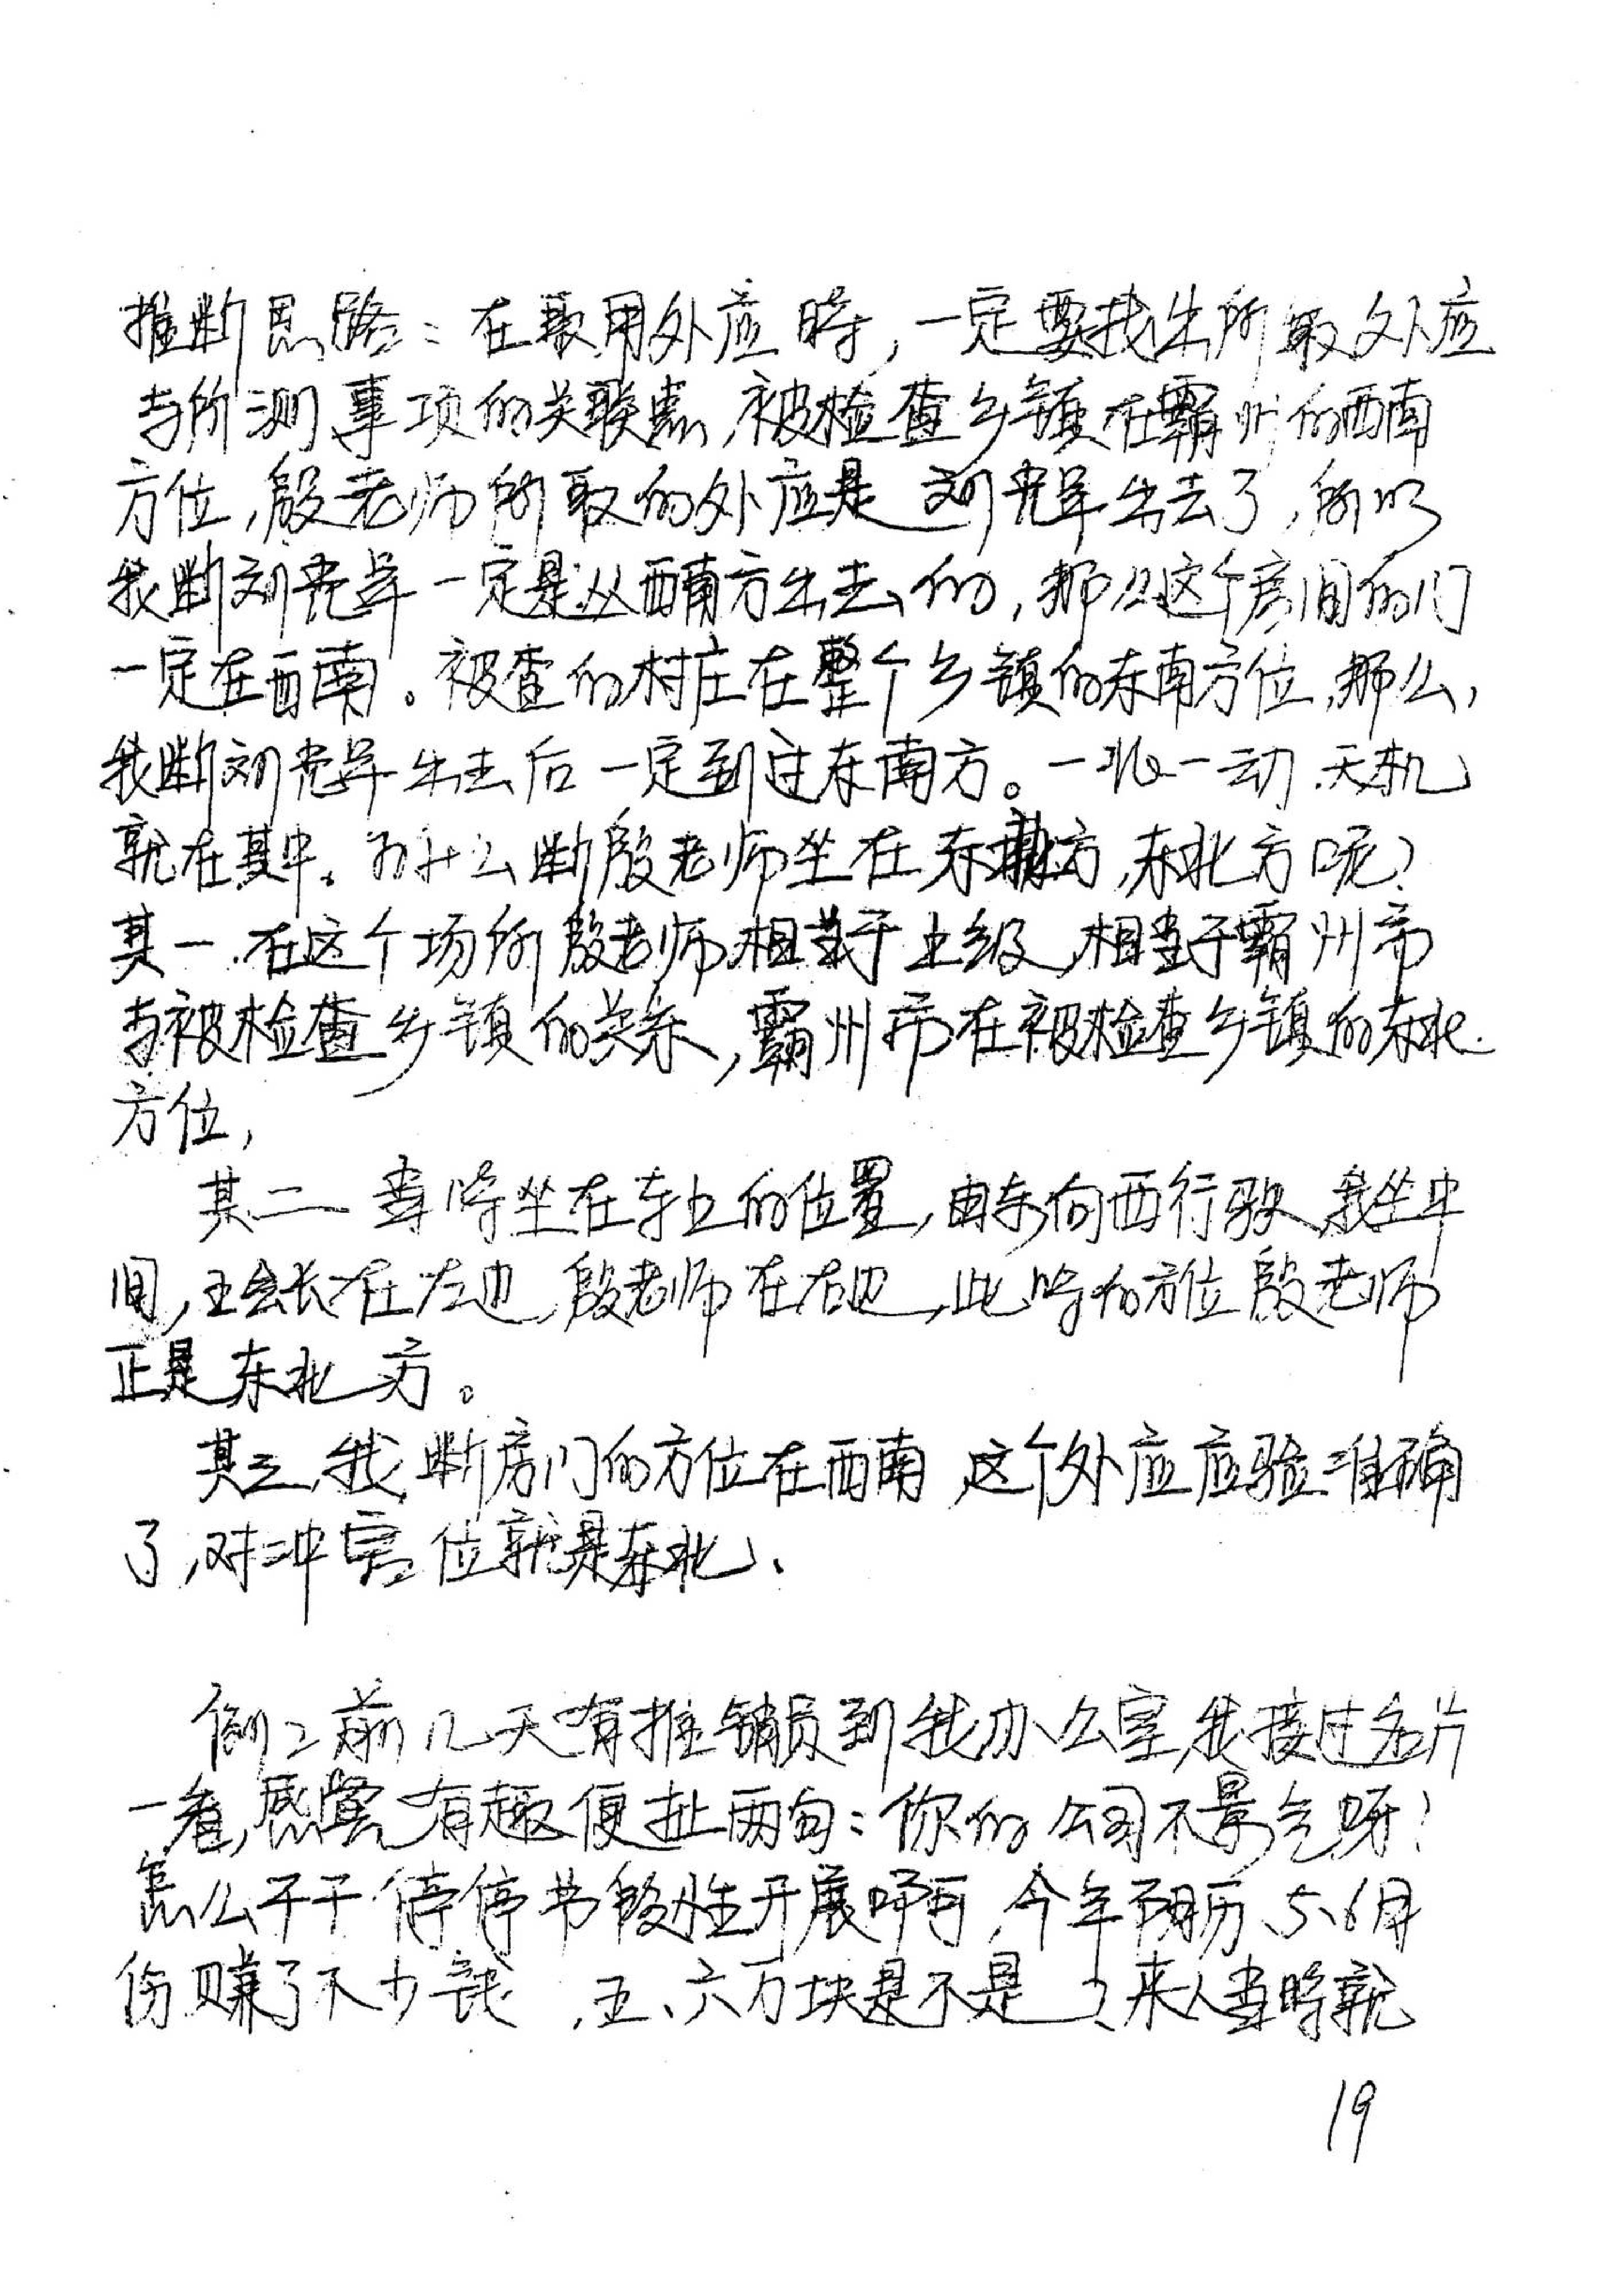 推断思路：在取用外应时，一定要找出所取外应
与所测事项的关联点，被检查乡镇在霸州的西南
方位，殷老师所取的外应是刘光军出去了，所以
我断刘光军一定是从西南方出去的，那么这个房间的门
一定在西南。被查的村庄在整个乡镇的东南方位，那么，
我断刘光军出去后一定到过东南方。一北一动，天机
就在其中。为什么断殷老师坐在东北方，东北方呢？
其一，在这个场所殷老师相当于上级，相当于霸州市
与被检查乡镇的关系，霸州市在被检查乡镇的东北
方位，
其二 当时坐在车上的位置，由东向西行驶，我坐中
间，王会长在左边，殷老师在右边，此时的方位殷老师
正是东北方。
其三，我断房门的方位在西南，这个外应应验准确
了，对冲宫位就是东北、
例2 前几天有推销员到我办公室，我接过名片
一看，感觉有趣便扯两句：你的公司不景气呀！
怎么干干停停节段性开展啊，今年阴历、5、6月
份赚了不少钱，五、六万块是不是？来人当时就
19